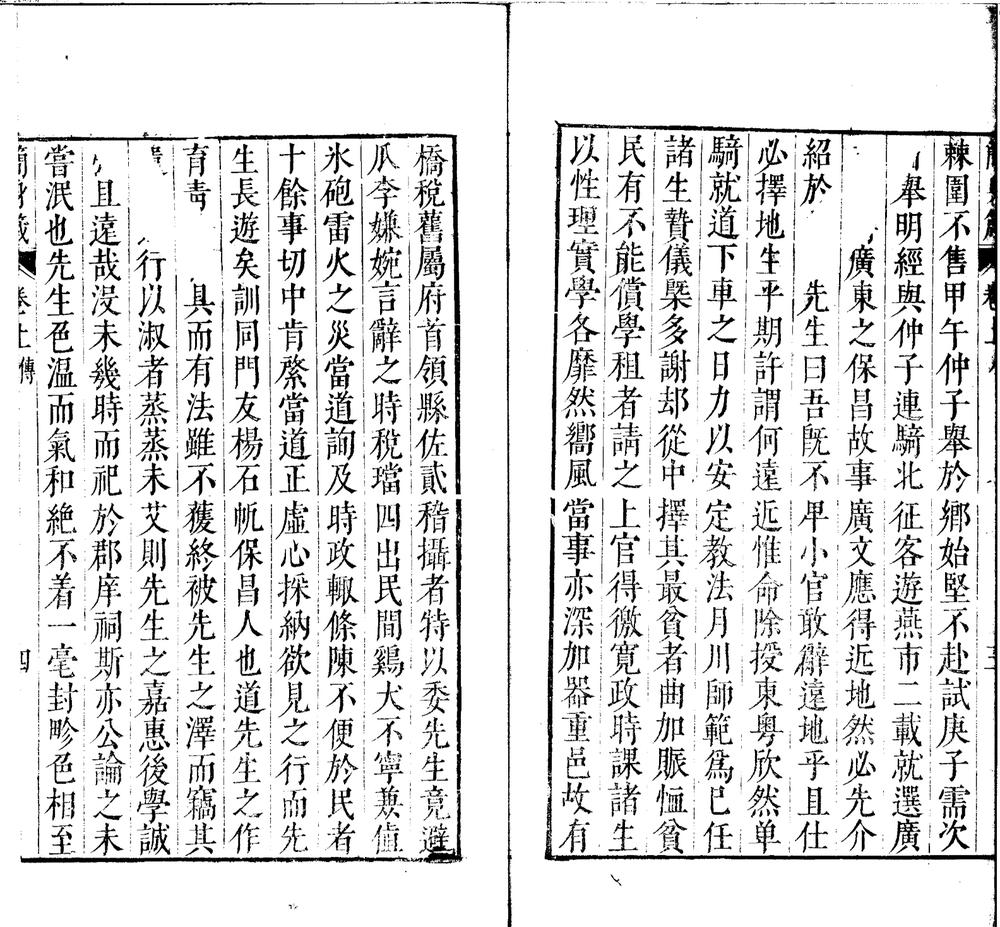 棘圍不售甲午仲子舉於鄉始堅不赴試庚子需次
舉明經與仲子連騎北征客遊燕市二載就選廣
廣東之保昌故事廣文應得近地然必先介
紹於 先生曰吾旣不卑小官敢辭遠地乎且仕
必擇地生平期許謂何遠近惟命除授東粤欣然单
騎就道下車之日力以安定教法月川師範爲已任
諸生贄儀槩多謝却從中擇其最貧者曲加賑恤貧
民有不能償學租者請之上官得徼寬政時課諸生
以性理實學各靡然嚮風當事亦深加器重邑故有
橋稅舊屬府首領縣佐貳稽攝者特以委先生竟避
瓜李嫌婉言辭之時稅璫四出民間鷄犬不寧兼值
氷砲雷火之災當道詢及時政輙條陳不便於民者
十餘事切中肯綮當道正虛心採納欲見之行而先
生長遊矣訓同門友楊石帆保昌人也道先生之作
育靑 具而有法雖不獲終被先生之澤而竊其
行以淑者蒸蒸未艾則先生之嘉惠後學誠
且遠哉沒未幾時而祀於郡庠祠斯亦公論之未
嘗泯也先生色温而氣和絶不着一毫封畛色相至
卷上 傳 四